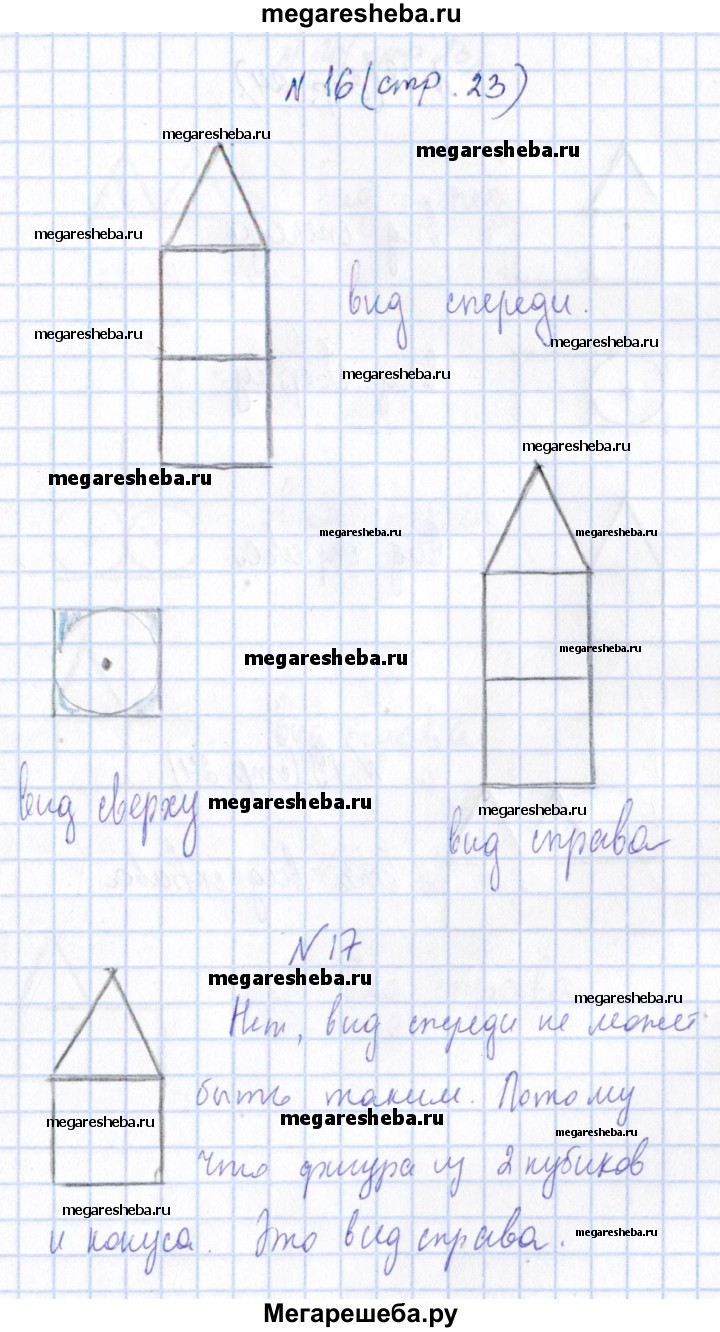 megaresheba.ru
N 16 (стр. 23)
megaresheba.ru
megaresheba.ru
megaresheba.ru
вид спереди.
megaresheba.ru
megaresheba.ru
megaresheba.ru
megaresheba.ru
megaresheba.ru
megaresheba.ru
megaresheba.ru
megaresheba.ru
megaresheba.ru
вид сверху
megaresheba.ru
megaresheba.ru
вид справа
N 17
megaresheba.ru
megaresheba.ru
Нет, вид спереди не может
быть таким. Потому
megaresheba.ru
megaresheba.ru
megaresheba.ru
что фигура из 2 кубиков
megaresheba.ru
и конуса. Это вид справа.
megaresheba.ru
Мегарешеба.ру